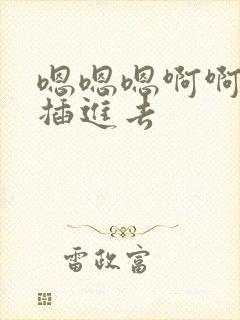 嗯嗯嗯啊啊
插進去
雷政富